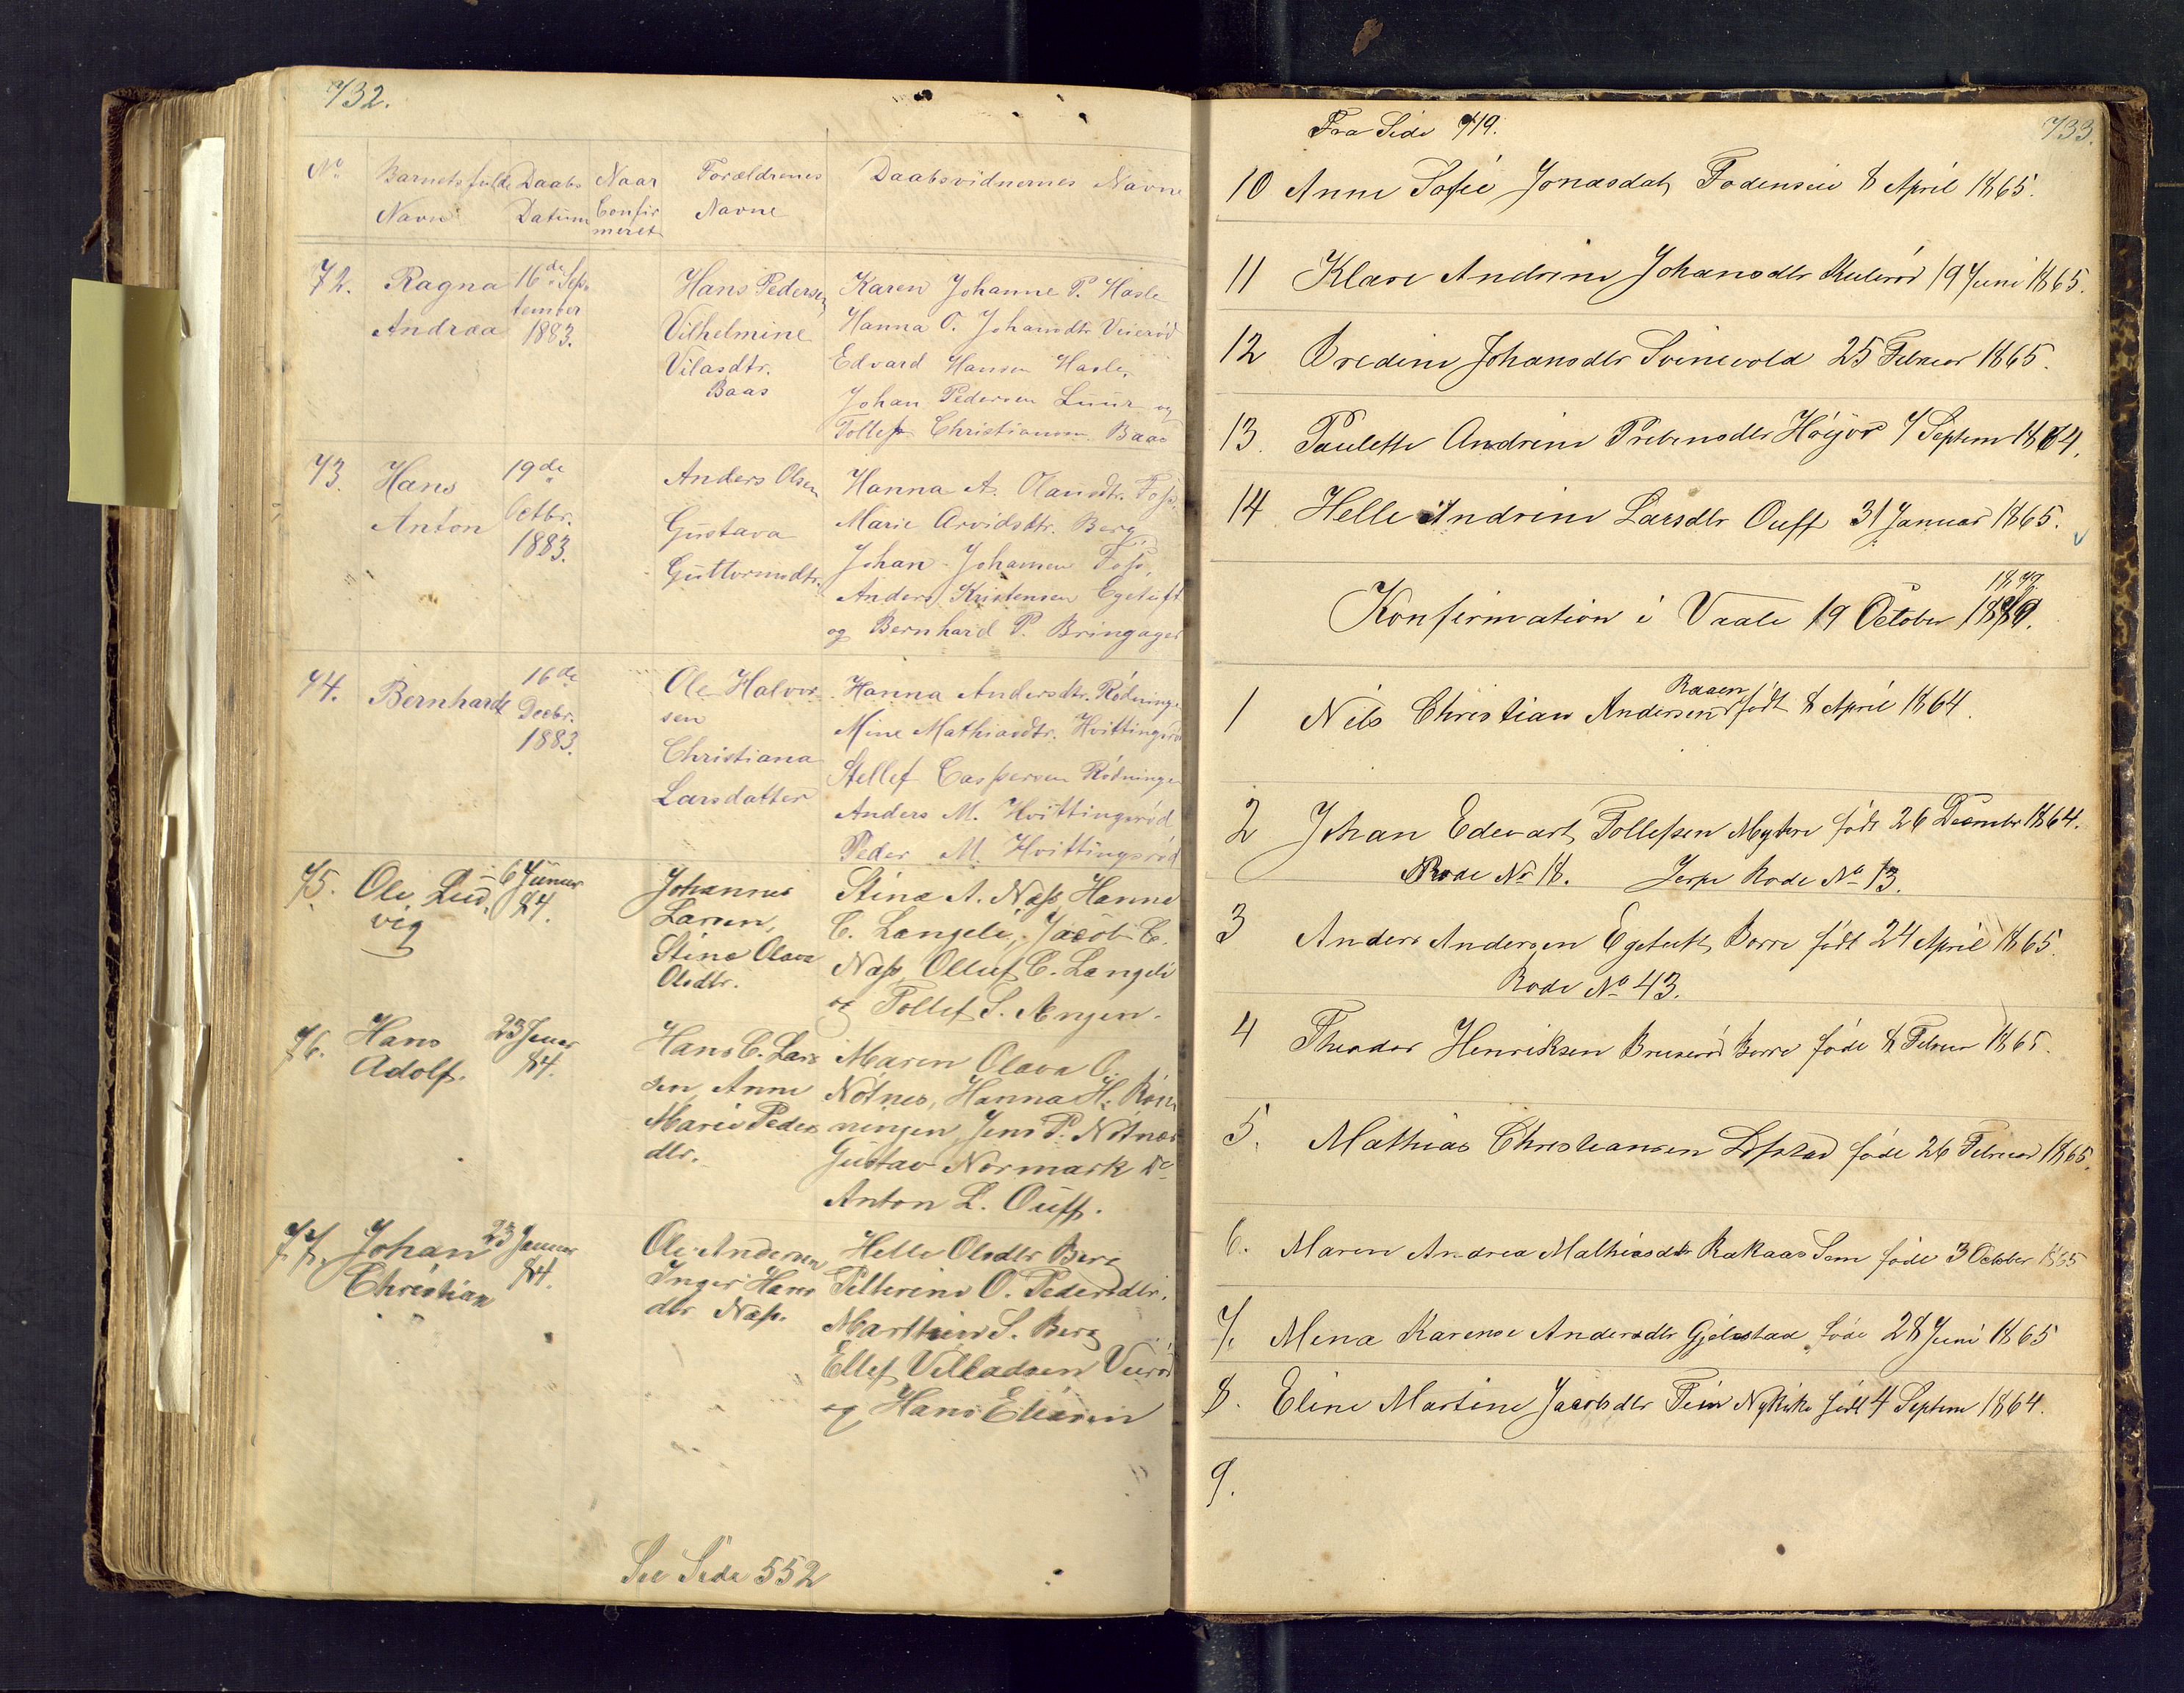 732.
No Barnets fulde Daabs Naar Forældrenes Daabsvidnernes Navne
Navn Datum Confir Navne
meret
72. Ragna 16de Sep- Hans Pedersen, Karen Johanne P. Hasle
tember Hanna O. Johansdtr Vierød
Andrea 1883. Vilhelmine Edvard Hansen Hasle,
Vilasdtr. Johan Pedersen Luur og
Baas Tollef Christiansen Baas
73. Hans 19de Anders Olsen Hanna A. Olausdtr. Foss.
Anton Octbr. Gustava Marie Arvidsdtr. Berg
1883. Johan Johansen Foss,
Guttormsdtr. Anders Kristensen Egetuft
og Bernhard P. Bringager
74. Bernhard 16de Ole Halvor- Hanna Andersdtr. Rødninge
Decbr. sen Mine Mathiasdtr. Hvittingsrød
1883. Christiana Stellef Caspersen Rødninge
Larsdatter Anders M. Hvittingsrød,
Peder M. Hvittingsrød
75. Ole Lud- 6 Januar Johannes Stina A. Næss, Hanne
vig 84. Larsen, C. Langeli, Jacob C.
Stina Olava Næss, Olluf C. Langeli
Olsdtr. og Tollef S. Ængen.
76. Hans 23 Januar Hans C. Lars Maren Olava O.
Adolf. 84. sen, Anne Nötnes, Hanna H. Røn
Marie Peders ningen, Jens P. Nötnes
dtr. Gustav Normark &
Anton L. Ouff.
77. Johan 23 Januar Ole Andersen Helle Olsdtr Berg
Christian 84. Inger Hans Petterine O. Pedersdtr.
dtr Næss. Marthin S. Berg
Ellef Velladsen Vierød
og Hans Eliasen
See Side 552
Fra Side 719. 733.
10 Anne Sofie Jonasdat Fodenseie 8 April 1865.
11 Klare Andrine Johansdtr Kulerød 19 Juni 1865.
12 Bredine Johansdtr Svinevold 25 Februar 1865.
13. Paulette Andrine Prebensdtr Höyjor 7 Septem 1864.
14 Helle Andrine Larsdtr Ouff 31 Januar 1865.
1879.
Konfirmation i Vaale 19 October 1889.
Raaen
1 Nils Christian Andersen født 8 April 1864.
2 Johan Edevart Tollefsen Myhre født 26 December 1864.
Rode No 18. Jerpe Rode No 13.
3 Anders Andersen Egetuft, Borre født 24 April 1865.
Rode No 43.
4 Theodor Henriksen Bruserød Borre føde 8 Februar 1865.
5. Mathias Christiansen Lofstad føde 26 Februar 1865.
6. Maren Andrea Mathiasdtr Rakaas Sem føde 3 October 1865
7. Mina Karense Andersdtr Gjelstad føde 28 Juni 1865
8. Eline Martine Jacobsdtr Fein Nykirke født 4 Septem 1864.
9.